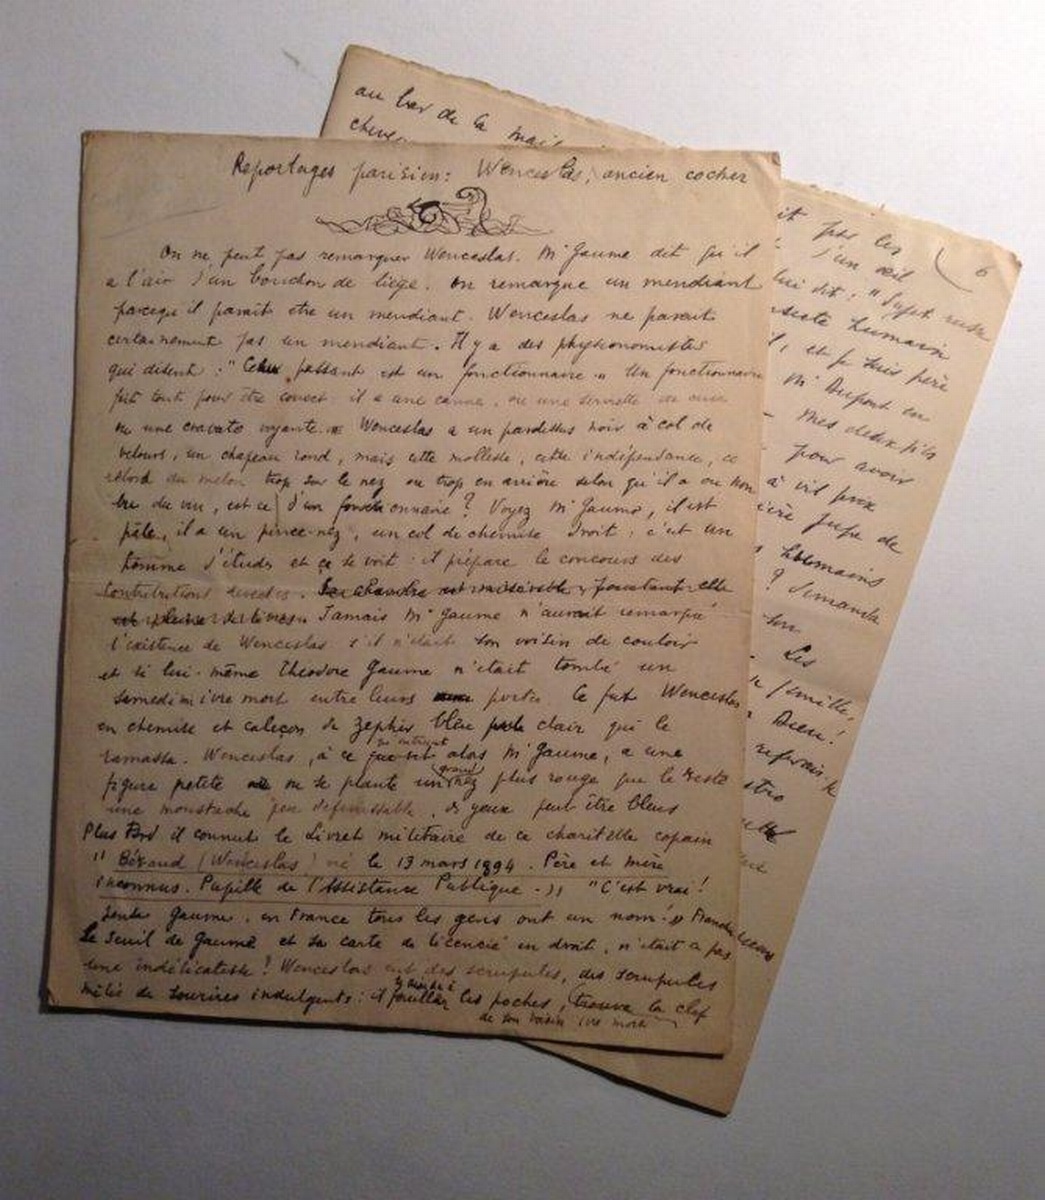 Reportages parisiens: Wenceslas, ancien cocher
On ne peut pas remarquer Wenceslas. Mr Gaume dit qu'il
a l'air d'un bouchon de liège. On remarque un mendiant
parcequ'il paraît etre un mendiant. Wenceslas ne parait
certainement pas un mendiant. Il y a des physionomistes
qui disent : " Ce passant est un fonctionnaire. " Un fonctionnaire
fait tout pour être correct : il a une canne, ou une serviette de cuir
ou une cravate voyante. Wenceslas a un pardessus noir à col de
velours, un chapeau rond, mais cette mollesse, cette indépendance, ce
rebord du melon trop sur le nez ou trop en arrière selon qu'il a ou non
bu du vin, est ce d'un fonctionnaire ? Voyez Mr Gaume, il est
pâle, il a un pince-nez, un col de chemise droit : c'est un
homme d'études et ça se voit : il prépare le concours des
Contributions directes. Sa chambre est misérable, pourtant elle
est pleine de livres. Jamais Mr Gaume n'aurait remarqué
l'existence de Wenceslas s'il n'était son voisin de couloir
et si lui-même Théodore Gaume n'était tombé un
samedi ivre mort entre leurs portes. Ce fut Wenceslas
en chemise et caleçon de zephir bleu clair qui le
ramassa. Wenceslas, à ce alors Mr Gaume, a une
figure petite ou se plante un grand nez plus rouge que le reste
une moustache peu definissable, des yeux peut être bleus
Plus tard il connut le Livret militaire de ce charitable copain
" Béraud (Wenceslas) né le 13 mars 1894. Père et mère
inconnus. Pupille de l'Assistance Publique. " " C'est vrai !
Gaume, en France tous les gens ont un nom ! "
le seuil de Gaume et sa carte de licencié en droit, n'était ce pas
une indélicatesse ? Wenceslas eut des scrupules, des scrupules
mêlés de sourires indulgents : il fouilla les poches, trouva la clef
de son voisin ivre mort
au bar de la
pas les
6
d'un œil
lui dit : "Sujet
insecte humain
, et je suis père
Mr Dupont en
Mes deux fils
pour avoir
à vil prix
jupe de
humains
? demanda
Les
famille,
Dieu !